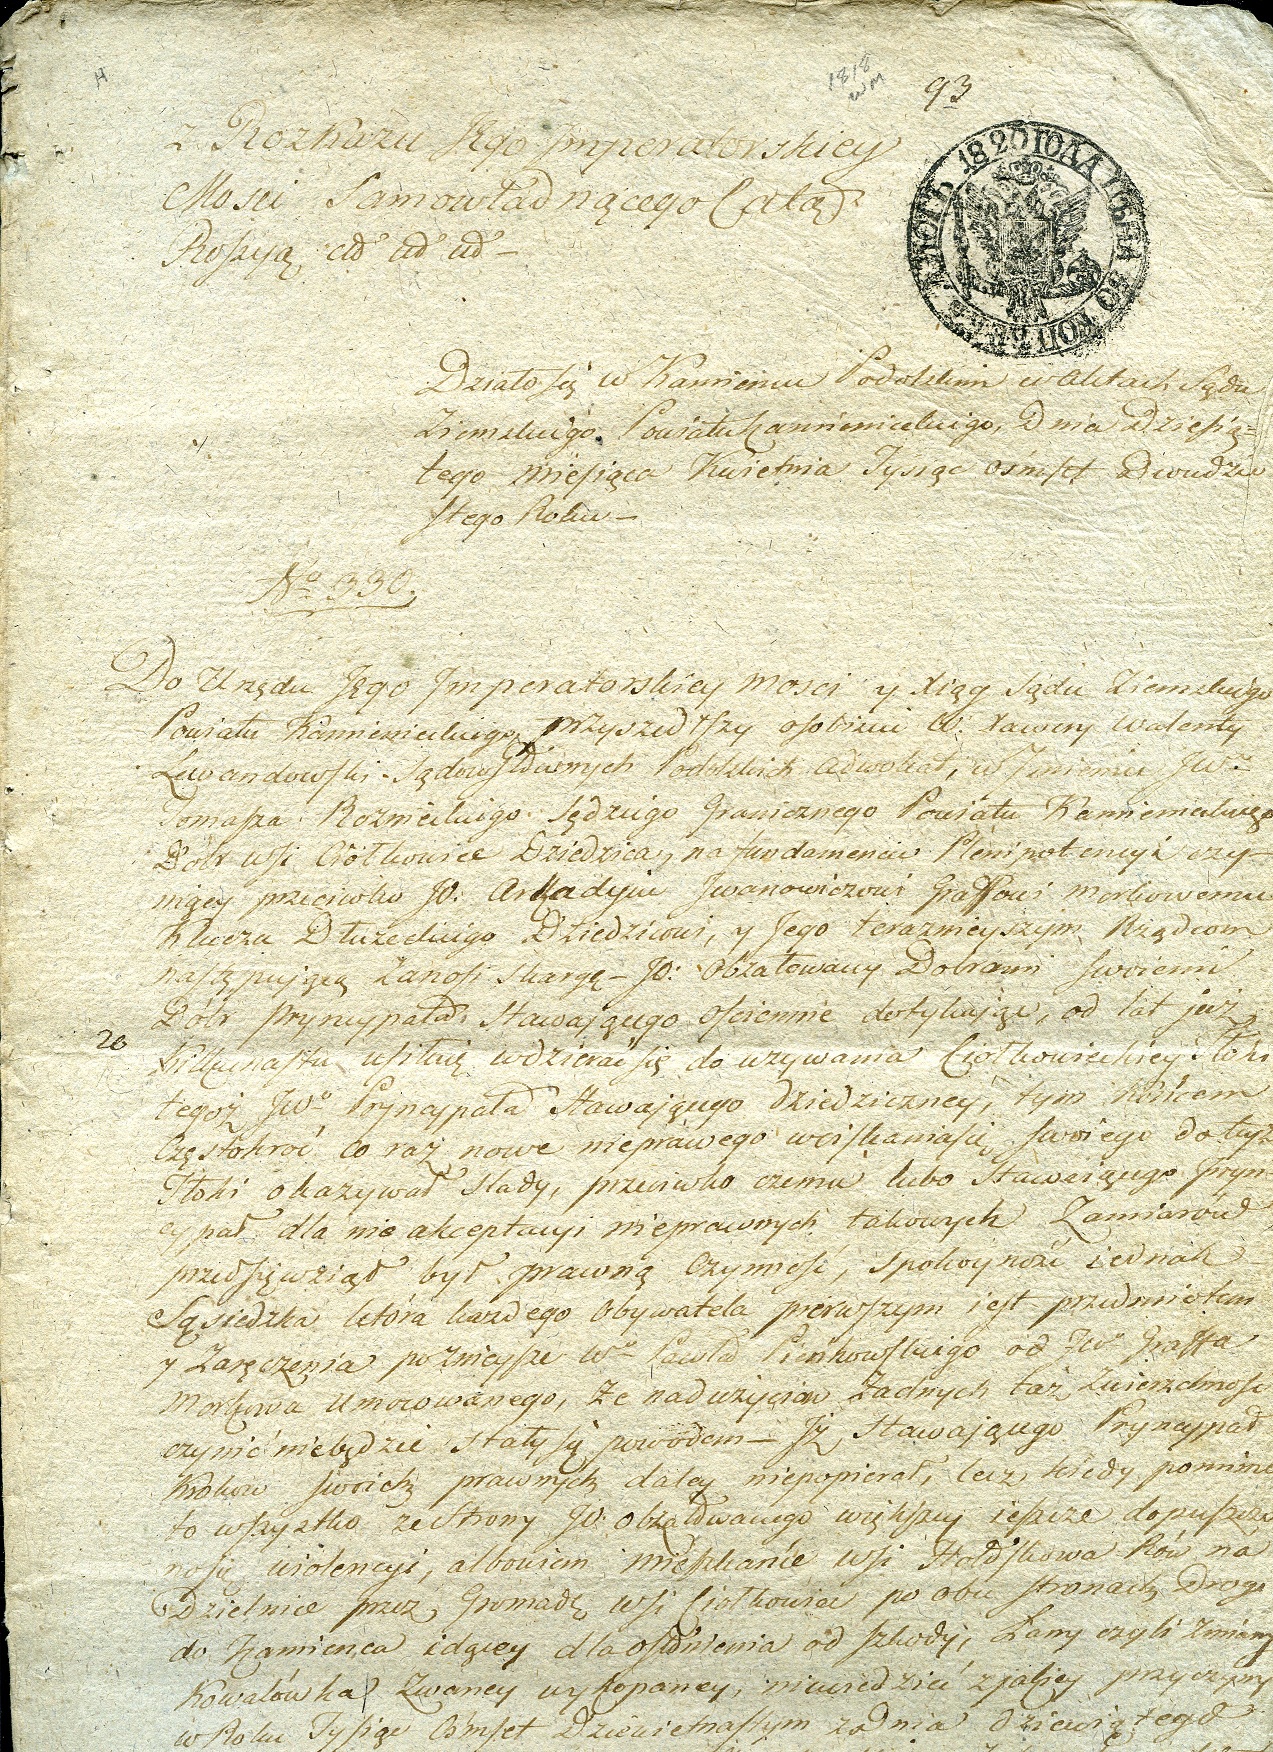 H
1818
WM
93
z Rozkazu Jego Imperatorskiey
Mosci Samowładnącego Całą
Rossyą etc etc etc –
1820 ГОДА ЦѢНА 50 КОПѢЕКЪ
Działo się w Kamieńcu Podolskim w Aktach Sądu
Ziemskiego Powiatu Kamienieckiego, Dnia Dziesią=
tego miesiąca Kwietnia Tysiąc ośmset Dwudzie
stego Roku –
No 330.
Do Urzędu Jego Imperatorskiey Mosci y Xiąg Sądu Ziemskiego
Powiatu Kamienieckiego przyszedłszy osobiscie W: Xawery Walenty
Lewandowski Sądow Głównych Podolskich Adwokat, w Imieniu JWo
Tomasza Rozmeckiego Sędziego Granicznego Powiatu Kamienieckiego
Dóbr wsi Ciołkowiec Dziedzica, na fundamencie Plenipotencyi czy-
niący przeciwko JO: Arkadyiu Iwanowiczowi Graffowi Morkowemu
Klucza Dłużeckiego Dziedzicowi, y Jego teraznieyszym Rządcom
następującą zanosi skargę – JO: Obżałowany Dobrami swoiemi
Dóbr Pryncypała Stawającego ościennie dotykając, od lat już
20
kilkunastu usiłuię wdzierać się do używania Ciołkowieckiey Tłoki
tegoż JWo Pryncypała Stawającego dziedziczney, tym końcem
Częstokroć co raz nowe nieprawego wciskania się swoiego do teyże
Tłoki okazywał slady, przeciwko czemu lubo Stawaiącego Pryn-
cypał dla nie akceptacyi nieprawnych takowych Zamiarów
przedsięwziął był prawną Czynność, spokoyność iednak
Sąsiedzka która każdego Obywatela pierwszym iest przedmiotem
y Zaręczenia poznieysze Wo Pawła Pieńkowskiego od JWo Graffa
Morkowa Umocowanego, że nadużyciów żadnych taż Zwierzchność
czynić niebędzie stały się powodem – Iż Stawającego Pryncypał
Kroków swoich prawnych daley niepopierał, lecz kiedy pomimo
to wszystko ze Strony JO: obżałowanego większey ieszcze dopuszcza
no się wiolencyi, albowiem mieszkańcie wsi Hołoskowa Rów na
Dzielnice przez Gromadę wsi Ciołkowiec po obu stronach Drogi
do Kamieńca idącey dla osłonienia od szkody, Łany czyli Zmiany
Kowalówka Zwaney wykopaney, niewiedzieć z jakiey przyczyny
w Roku Tysiąc Ośmset Dziewietnastym z dnia dziewiątego